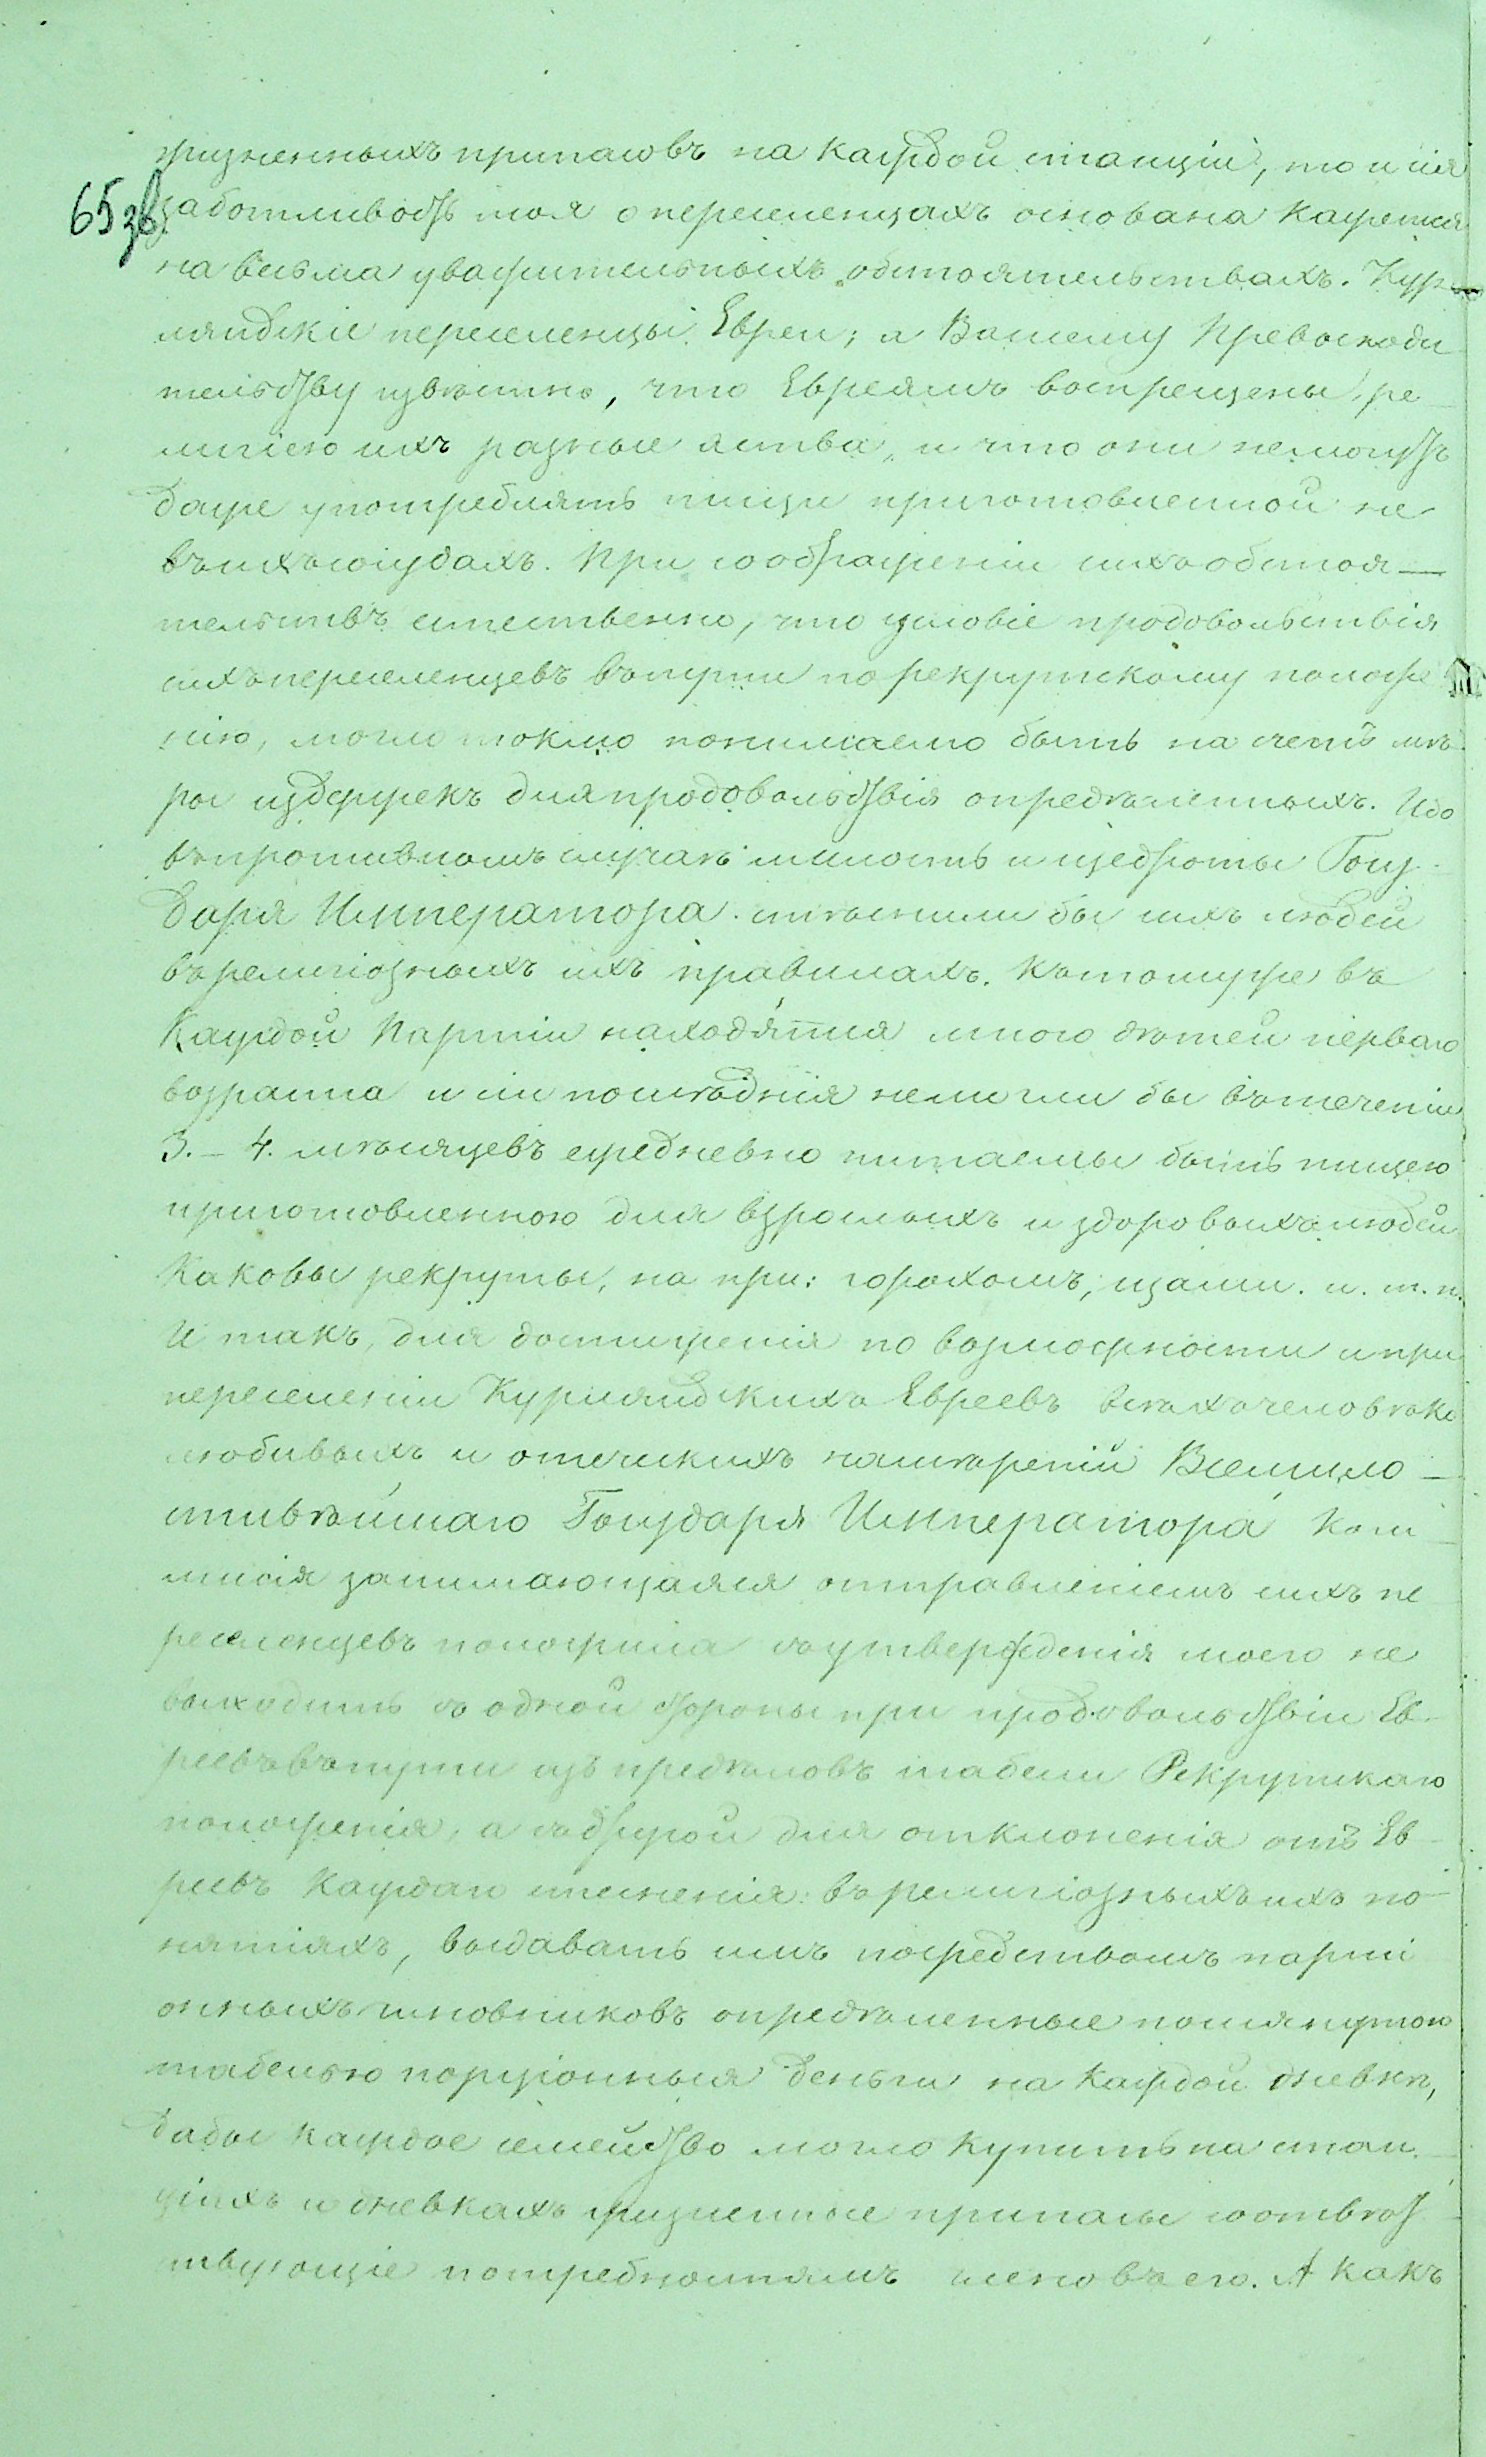 жизненныхъ припасовъ на каждой станціи, то и сія
65 зв
заботливость моя о переселенцахъ основана кажется
на весьма уважительныхъ обстоятельствахъ. Кур-
ляндскіе переселенцы Евреи; а Вашему Превосходи
тельству извѣстно, что Евреямъ воспрещены ре-
лигіею ихъ разные яства, и что они немогутъ
даже употреблять пищи приготовленной не
въ ихъ сосудахъ. При соображеніи сихъ обстоя-
тельствъ естественно, что условіе продовольствія
сихъ переселенцевъ въ пути по рекрутскому положе
нію, могло токмо понимаемо быть на счетъ мѣ-
ры издержекъ для продовольствія опредѣленныхъ. Ибо
въ противномъ случаѣ милость и щедроты Госу-
даря Императора стѣснили бы сихъ людей
въ религіозныхъ ихъ правилахъ. Къ томуже въ
каждой Партіи находятся много дѣтей перваго
возраста и сіи послѣднія немогли бы въ теченіи
3.-4. мѣсяцевъ ежедневно питаемы быть пищею
приготовленною для взрослыхъ и здоровыхъ людей
каковы рекруты, на при: горохомъ, щами. и. т. п.
И такъ, для достиженія по возможности и при
переселеніи Курляндскихъ Евреевъ всѣхъ человѣко
любивыхъ и отеческихъ намѣреній Всемило-
стивѣйшаго Государя Императора Ком-
мисія занимающаяся отправленіемъ сихъ пе
реселенцевъ положила съ утвержденія моего не
выходить съ одной стороны при продовольствіи Ев-
реевъ въ пути изъ предѣловъ табели Рекрутскаго
положенія, а съ другой для отклоненія отъ Ев-
реевъ каждаго стесненія въ религіозныхъ ихъ по-
нятіяхъ, выдавать имъ посредствомъ парті
онныхъ чиновниковъ опредѣленные помянутою
табелью порціонныя деньги на каждой дневкѣ,
дабы каждое семейство могло купить на стан-
ціяхъ и дневкахъ жизненные припасы соотвѣт-
ствующіе потребностямъ членовъ его. А какъ